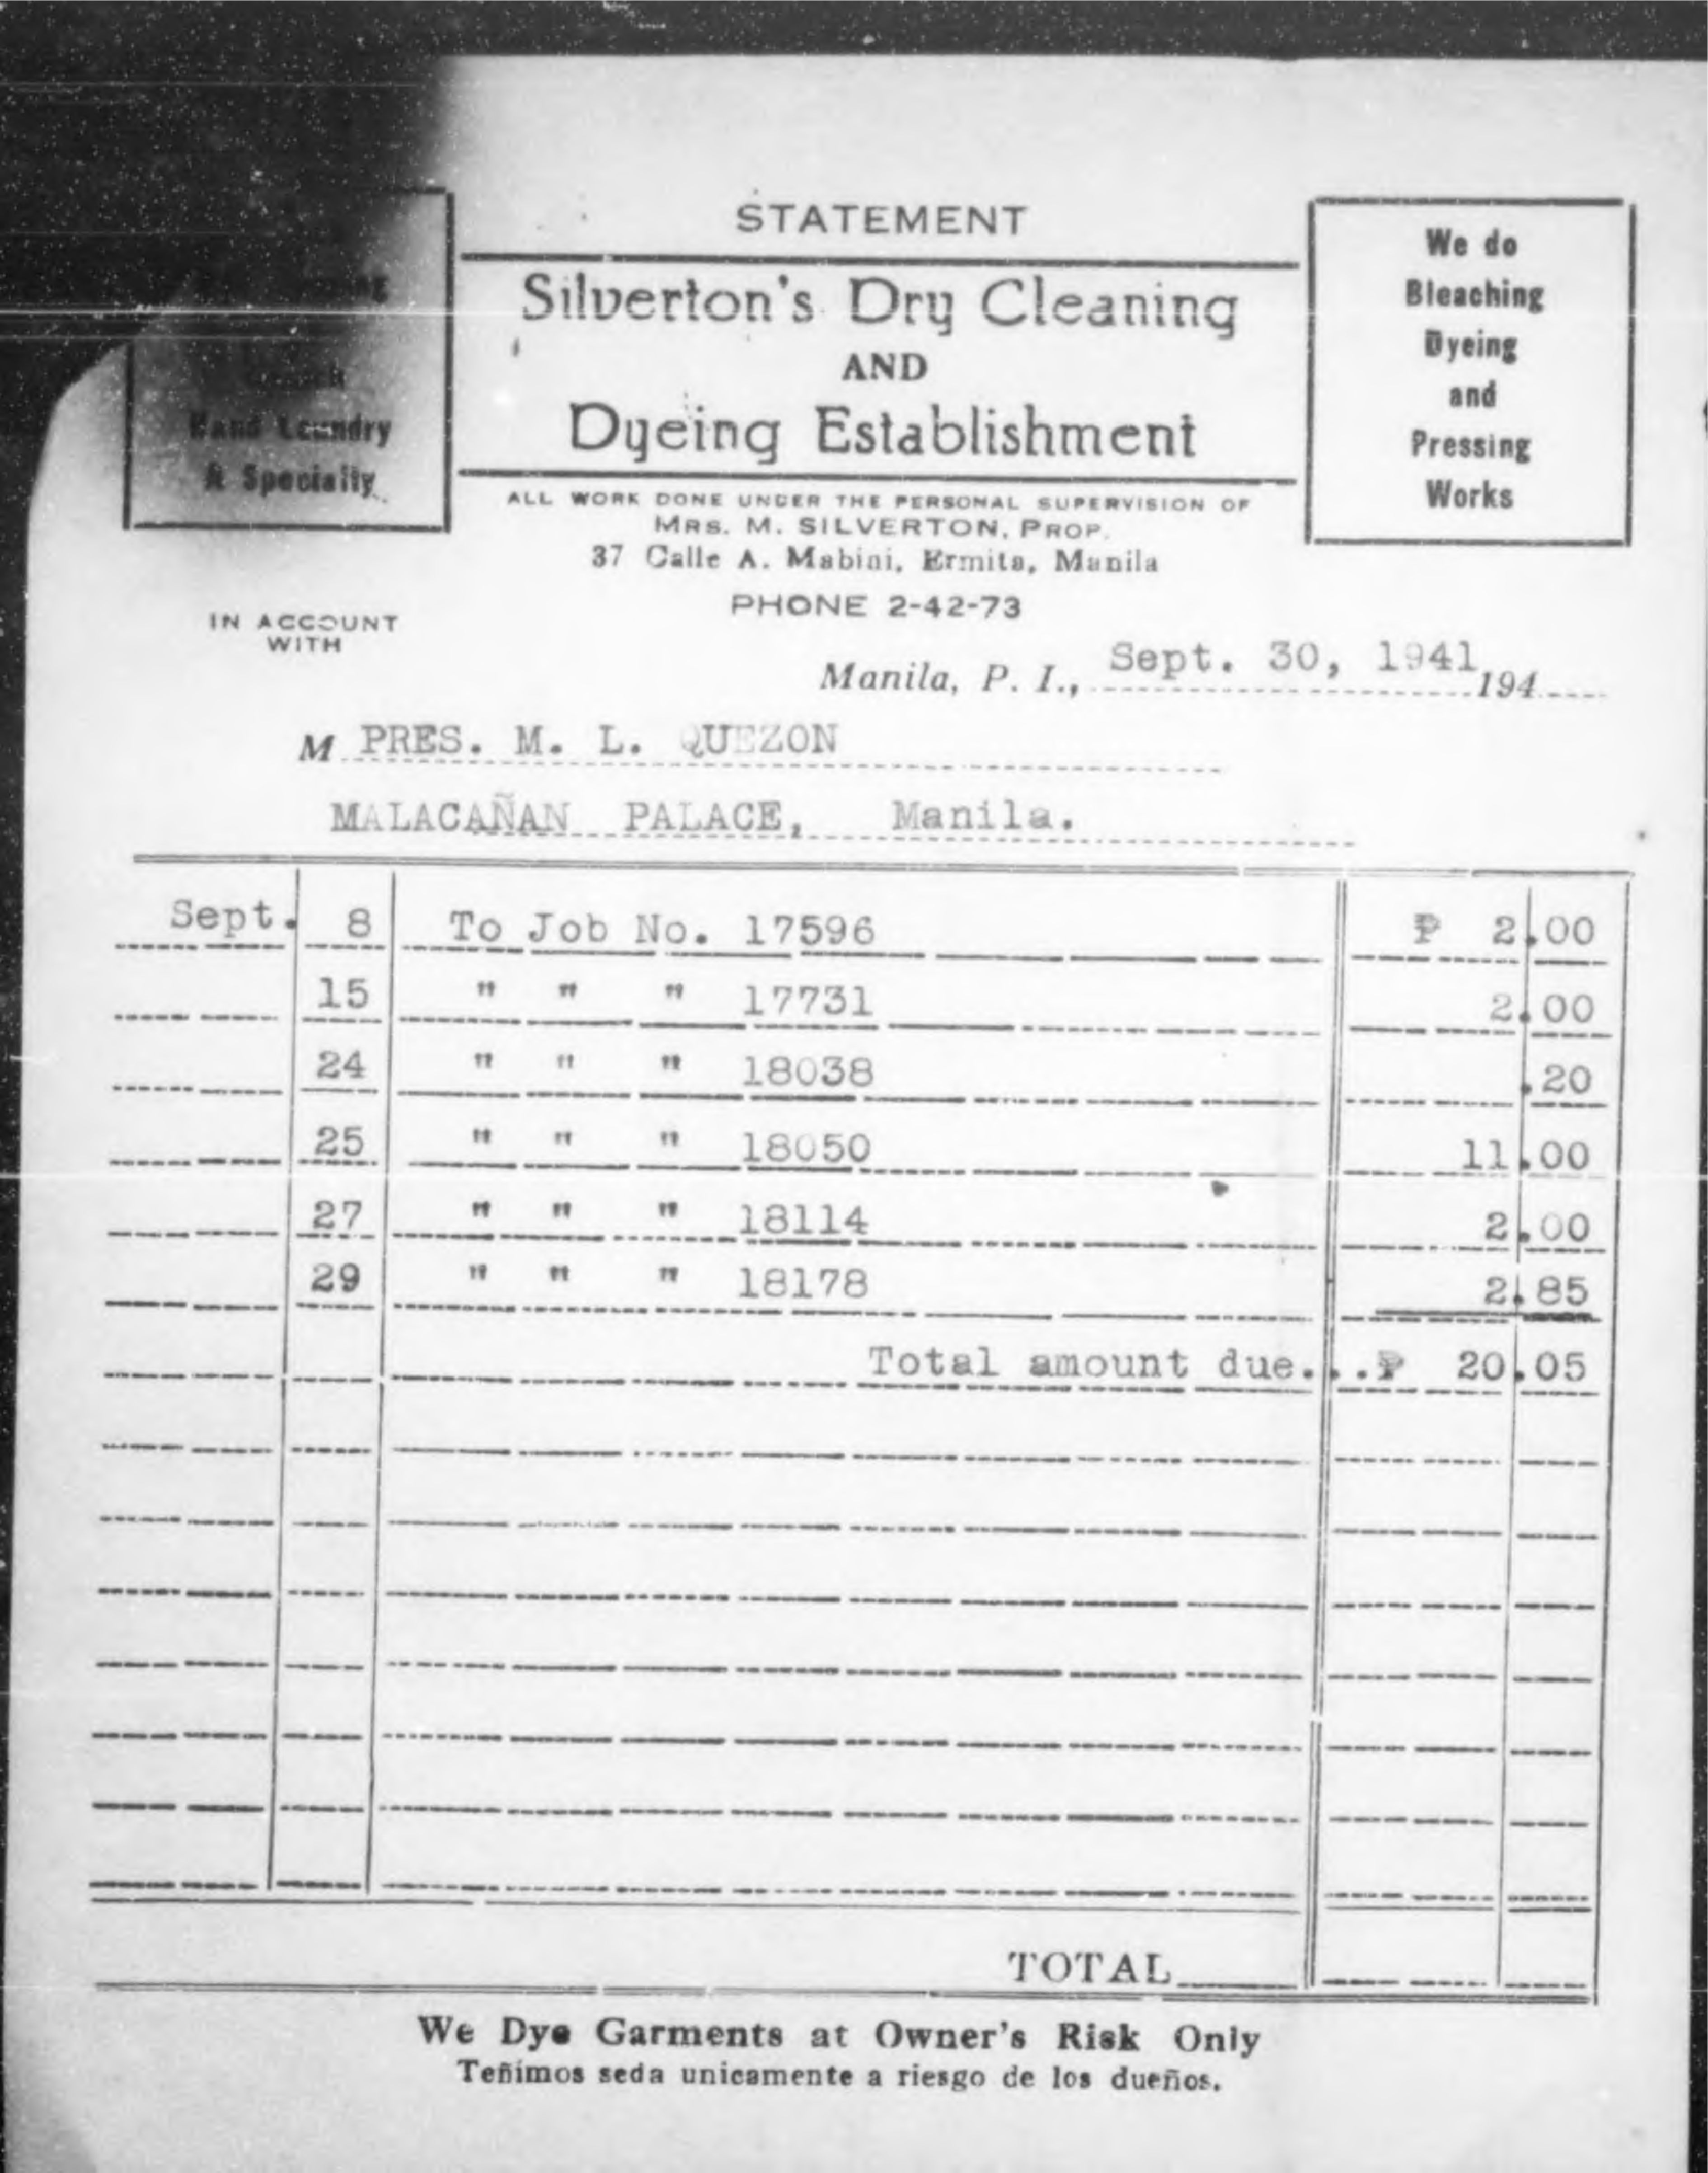 STATEMENT
Silverton's Dry Cleaning
AND
Dyeing Establishment
ALL WORK DONE UNDER THE PERSONAL SUPERVISION OF
MRS. M. SILVERTON, PROP.
37 Calle A. Mabini, Ermita, Manila
PHONE 2-42-73
Hand Laundry
A Specialty
We do
Bleaching
Dyeing
and
Pressing
Works
IN ACCOUNT
WITH
Manila, P. I., Sept. 30, 1941 194
M PRES. M. L. QUEZON
MALACAÑAN PALACE, Manila.
Sept. 8 To Job No. 17596 ₱ 2.00
15 " " " 17731 2.00
24 " " " 18038 .20
25 " " " 18050 11.00
27 " " " 18114 2.00
29 " " " 18178 2.85
Total amount due...₱ 20.05
TOTAL
We Dye Garments at Owner's Risk Only
Teñimos seda unicamente a riesgo de los dueños.